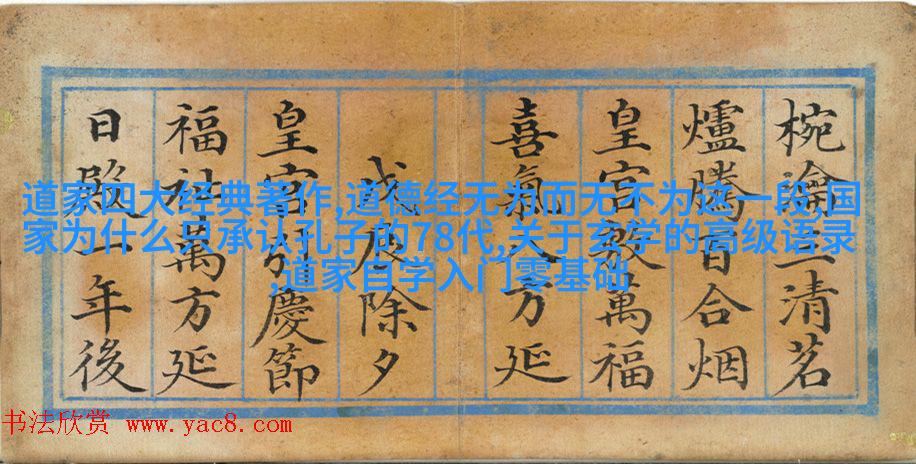 椀瀹三清茗
爐騰百合烟
皇宮敷萬福
喜氣八方延
戊辰除夕
皇宮引慶節
福祉萬方延
日殿一年後
道家四大经典著作,道德经无为而无不为这一段,国
家为什么只承认孔子的78代,关于玄学的高级语录
,道家自学入门零基础
书法欣赏 www.yac8.com